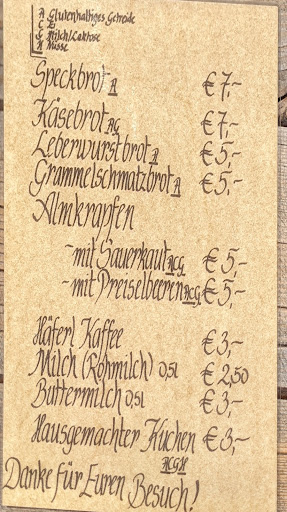 A Glutenhaltiges Getreide
C Ei
G Milch/Laktose
H Nüsse
Speckbrot A €7,-
Käsebrot AG €7,-
Leberwurstbrot A €5,-
Grammelschmalzbrot A €5,-
Almkrapfen
- mit Sauerkraut ACG €5,-
- mit Preiselbeeren ACG €5,-
Häferl Kaffee €3,-
Milch (Rohmilch) 0,5l €2,50
Buttermilch 0,5l €3,-
Hausgemachter Kuchen €3,-
ACGH
Danke für Euren Besuch!